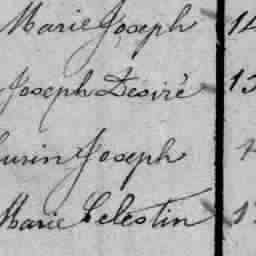 Marie Joseph 14
Joseph Desiré
Joseph
Marie Celestin